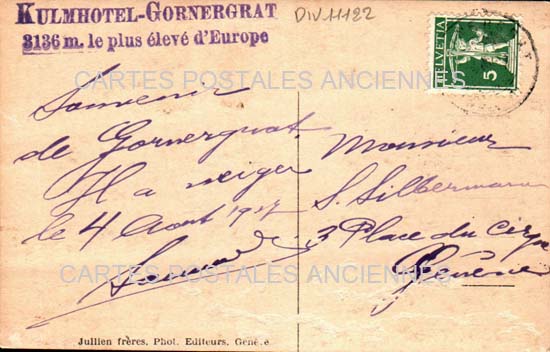 KULMHOTEL-GORNERGRAT
3136 m. le plus élevé d'Europe
DIV11122
HELVETIA
5
CARTES POSTALES ANCIENNES
Souvenir
de Gornergrat
Il a neigé
le 4 Août
Monsieur
S. Silbermann
3 Place du Cirque
Genève
CARTES POSTALES ANCIENNES
Jullien frères, Phot. Editeurs, Genève